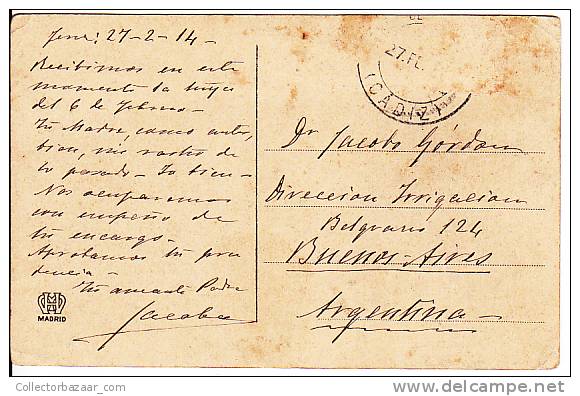 Jerez: 27-2-14-
Recibimos en este
momento la tuya
del 6 de febrero-
Tu Madre, como antes,
bien, sin rastro de
lo pasado- Yo bien-
Nos ocuparemos
con empeño de
tu encargo-
Aprobamos tu pru
dencia-
Tu amante Padre
Jacobo
MADRID
27.FE.
(CADIZ)
Dr Jacobo Górdon
Direccion Irrigacion
Belgrano 124
Buenos-Aires
Argentina-
Collectorbazaar_com
delcampe.net